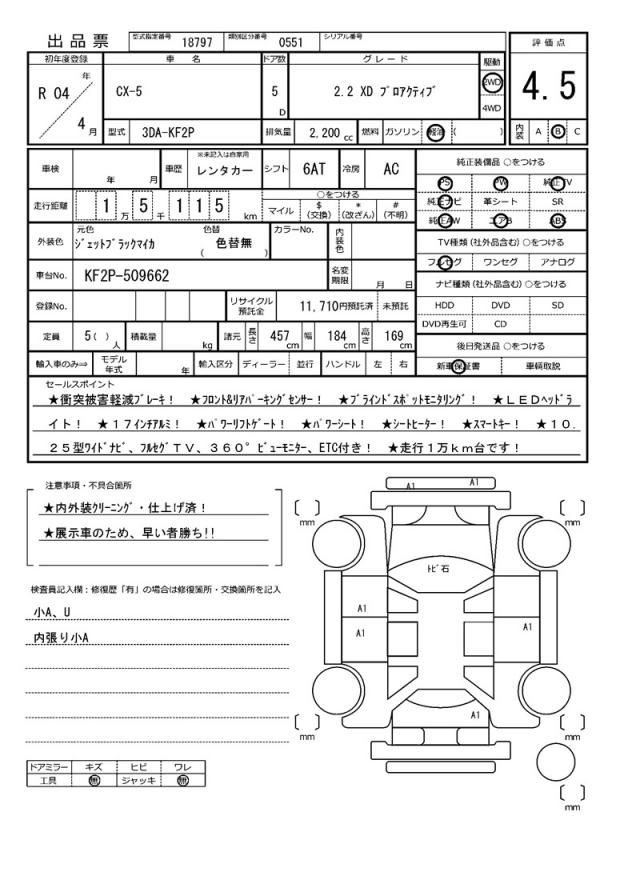 出品票 型式指定番号 18797 類別区分番号 0551 シリアル番号
評価点
4.5
内装 A B C
初年度登録 車名 ドア数 グレード 駆動
R 04 年 4 月
CX-5 5 D 2.2 XD プロアクティブ 2WD 4WD
型式 3DA-KF2P 排気量 2,200 cc 燃料 ガソリン 軽油 ( )
車検 年 月 車歴 ※未記入は自家用 レンタカー シフト 6AT 冷房 AC
走行距離 1 万 5 千 1 1 5 km ○をつける
マイル $ (交換) * (改ざん) # (不明)
外装色 元色 ジェットブラックマイカ 色替 ( 色替無 ) カラーNo. 内装色
車台No. KF2P-509662 名変期限 月 日
登録No. リサイクル預託金 11,710円預託済 未預託
定員 5( ) 人 積載量 kg 諸元 長さ 457 cm 幅 184 cm 高さ 169 cm
輸入車のみ⇒ モデル年式 年 輸入区分 ディーラー 並行 ハンドル 左 右
純正装備品 ○をつける
PS PW 純正TV
純正ナビ 革シート SR
純正AW エアB ABS
TV種類(社外品含む)○をつける
フルセグ ワンセグ アナログ
ナビ種類(社外品含む)○をつける
HDD DVD SD
DVD再生可 CD
後日発送品 ○をつける
新車保証書 車輌取説
セールスポイント
★衝突被害軽減ブレーキ! ★フロント&リアパーキングセンサー! ★ブラインドスポットモニタリング! ★LEDヘッドラ
イト! ★17インチアルミ! ★パワーリフトゲート! ★パワーシート! ★シートヒーター! ★スマートキー! ★10.
25型ワイドナビ、フルセグTV、360°ビューモニター、ETC付き! ★走行1万km台です!
注意事項・不具合箇所
★内外装クリーニング・仕上げ済!
★展示車のため、早い者勝ち!!
検査員記入欄:修復歴「有」の場合は修復箇所・交換箇所を記入
小A、U
内張り小A
ドアミラー キズ ヒビ ワレ
工具 無 ジャッキ 無
A1 A1
mm mm
トビ石
A1
A1 A1
A1
mm mm
mm